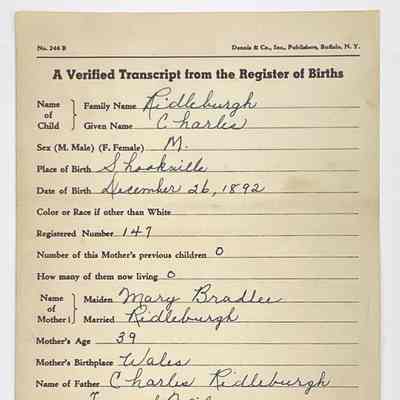 No. 246 B Dennis & Co., Inc., Publishers, Buffalo, N. Y.
A Verified Transcript from the Register of Births
Name of Child } Family Name Ridleburgh
Given Name Charles
Sex (M. Male) (F. Female) M.
Place of Birth Shookville
Date of Birth December 26, 1892
Color or Race if other than White
Registered Number 147
Number of this Mother's previous children 0
How many of them now living 0
Name of Mother } Maiden Mary Bradlee
Married Ridleburgh
Mother's Age 39
Mother's Birthplace Wales
Name of Father Charles Ridleburgh